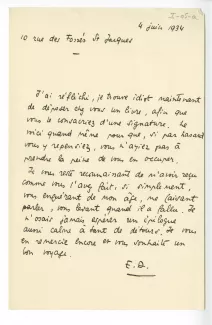 I-05-a
4 juin 1934
10 rue des Fossés St Jacques
J'ai réfléchi, je trouve idiot maintenant
de déposer chez vous un livre, afin que
vous le consacriez d'une signature. Le
voici quand même pour que, si par hasard
vous y repensiez, vous n'ayiez pas à
prendre la peine de vous en occuper.
Je vous reste reconnaissant de m'avoir reçu
comme vous l'avez fait, si simplement,
vous enquérant de mon âge, me faisant
parler, vous levant quand il a fallu. Je
n'osais jamais espérer un épilogue
aussi calme à tant de détours. Je vous
en remercie encore et vous souhaite un
bon voyage.